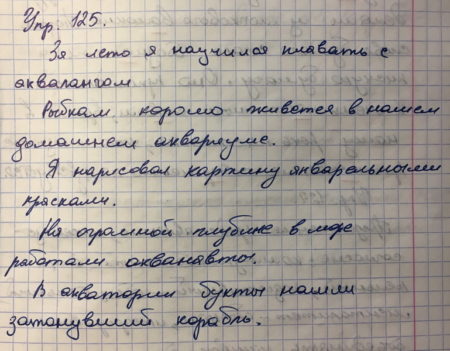 Упр. 125.
За лето я научился плавать с
аквалангом
Рыбкам хорошо живется в нашем
домашнем аквариуме.
Я нарисовал картину акварельными
красками.
На огромной глубине в море
работали акванавты.
В акватории бухты нашли
затонувший корабль.